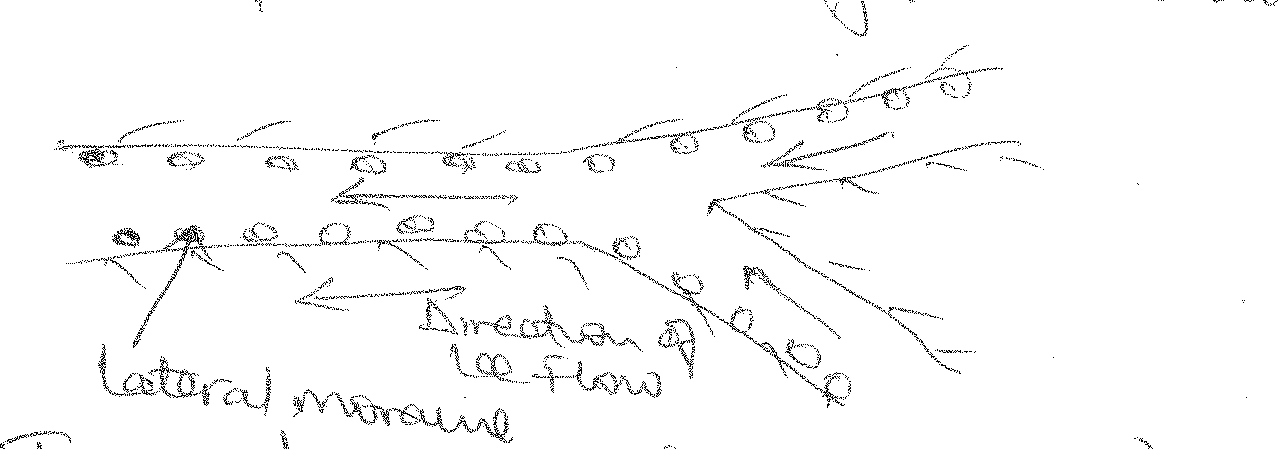 Direction of
Ice flow
Lateral moraine